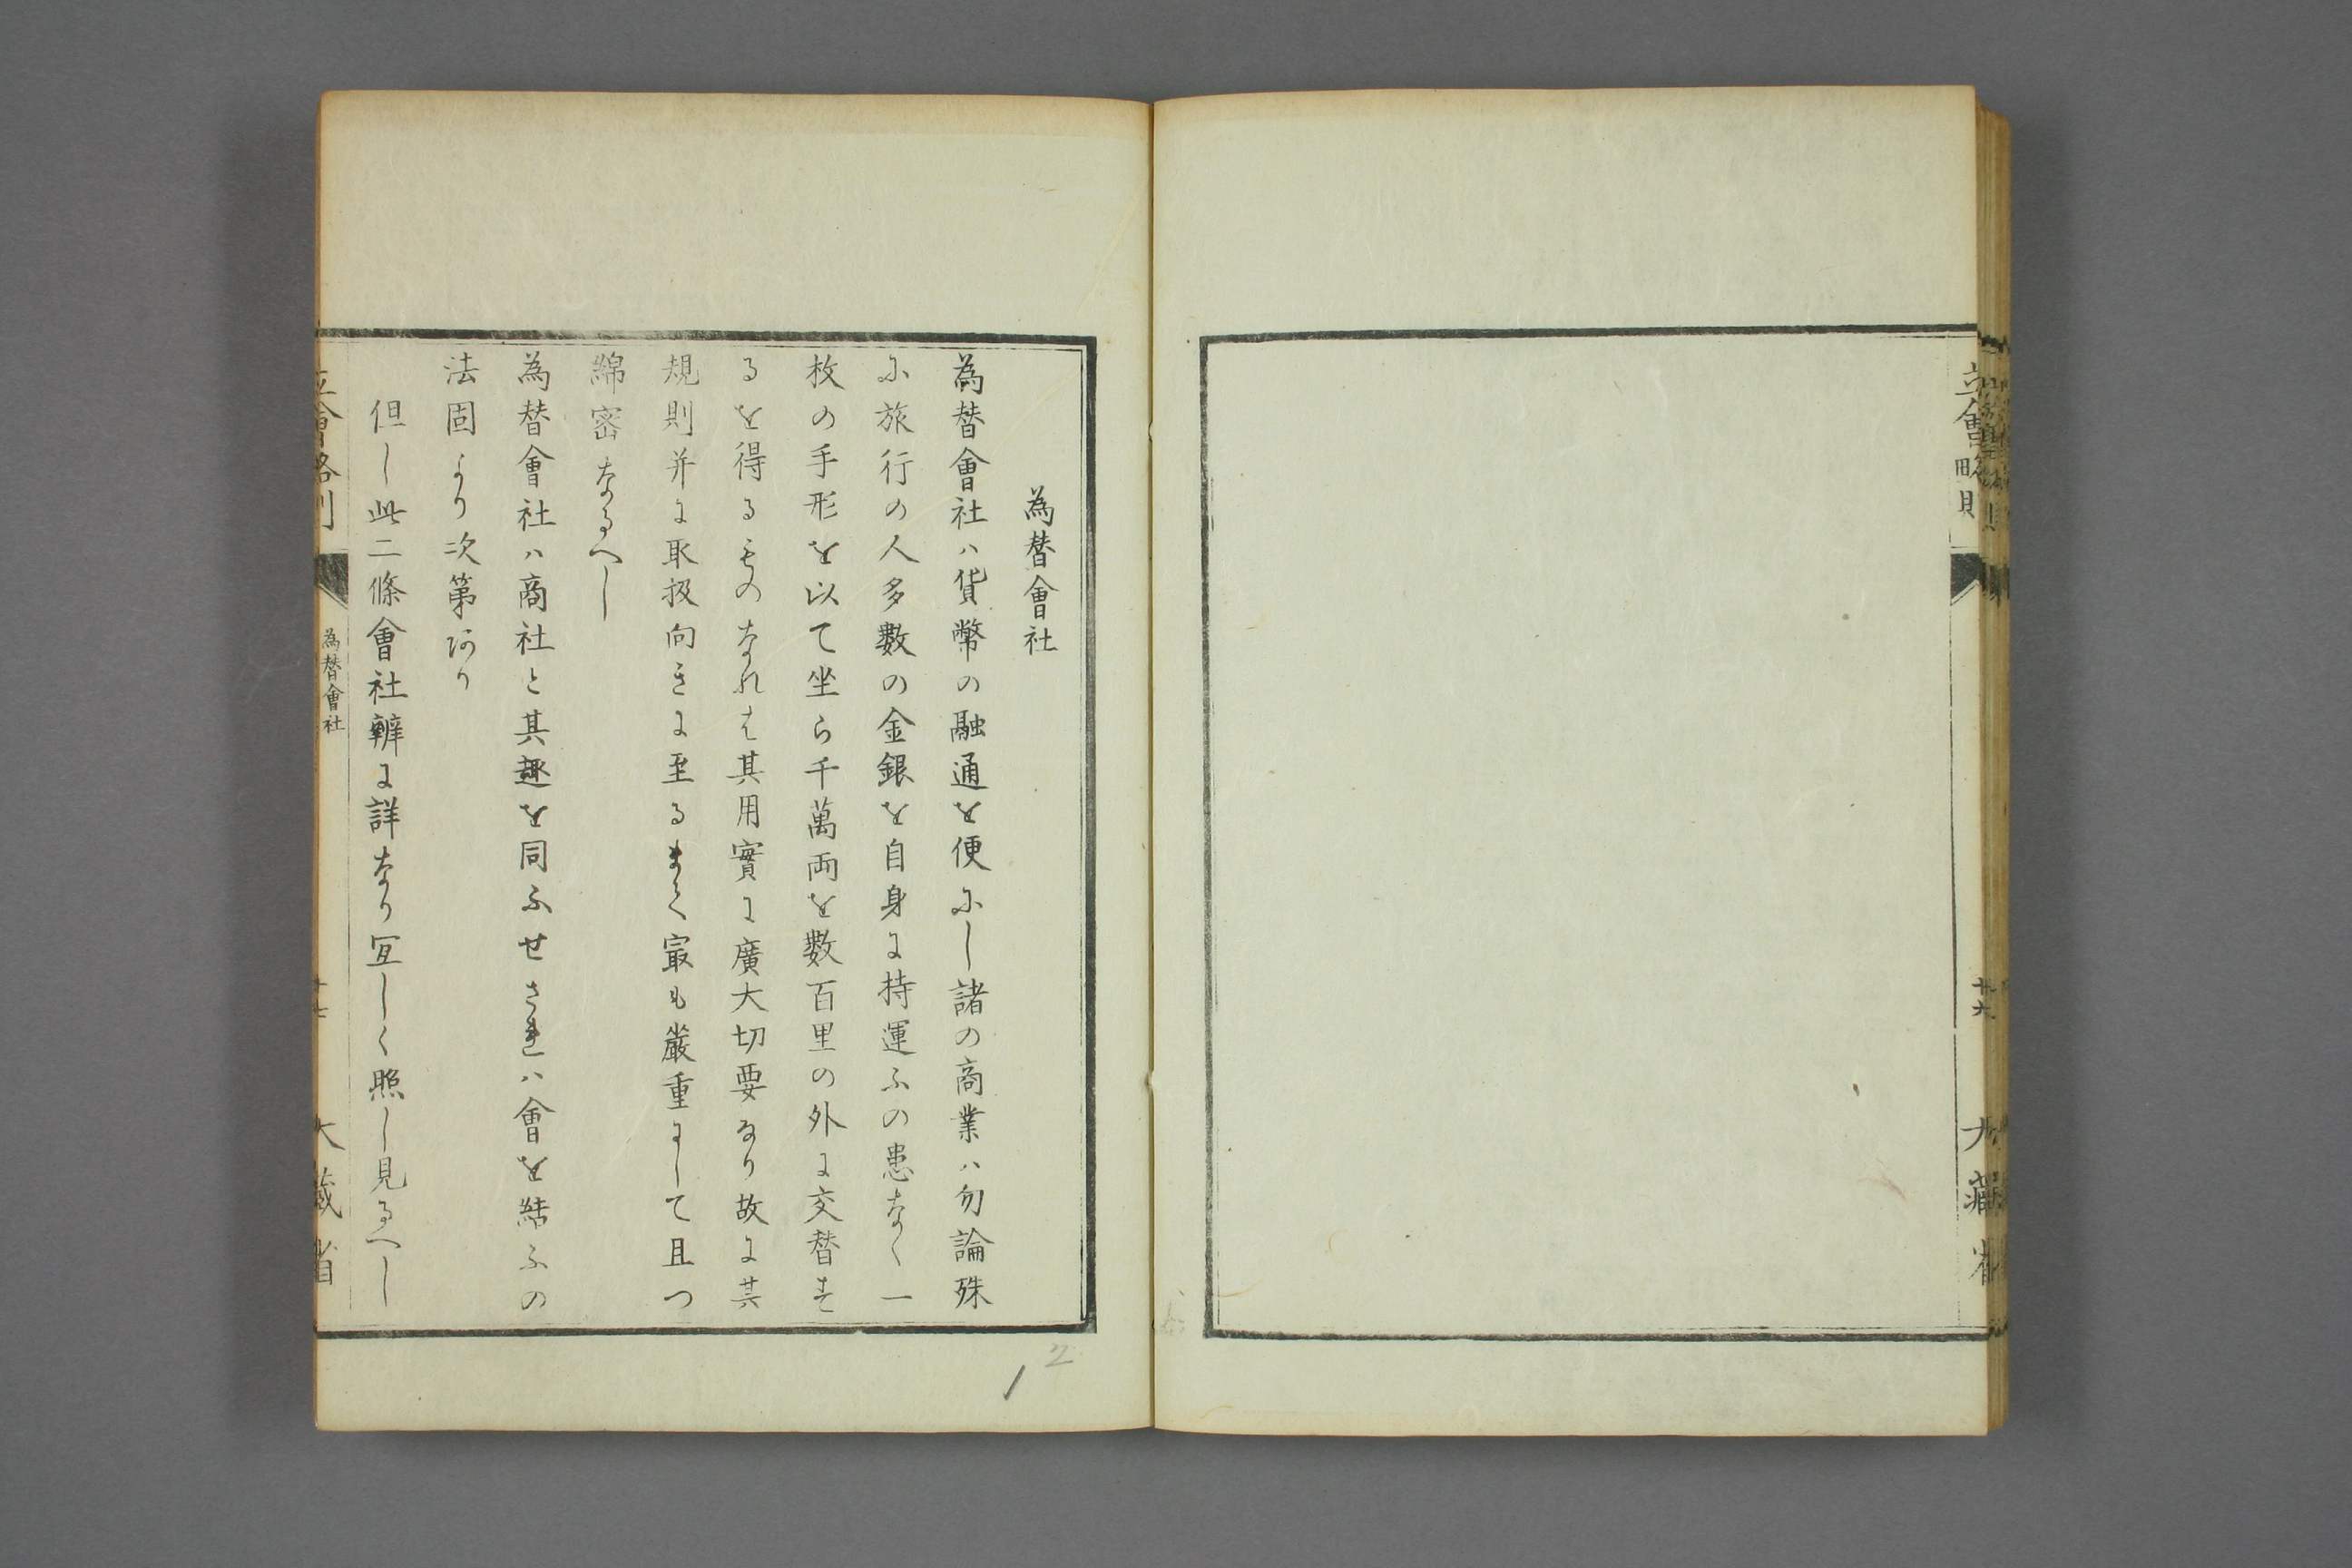 立會略則
十六
大藏省
為替會社
為替會社ハ貨幣の融通を便にし諸の商業ハ勿論殊
に旅行の人多數の金銀を自身に持運ふの患なく一
枚の手形を以て坐ら千萬両を數百里の外に交替す
るを得るものなれは其用實に廣大切要なり故に其
規則并に取扱向きに至るまて冣も嚴重にして且つ
綿密なるへし
為替會社ハ商社と其趣を同ふせされハ會を結ふの
法固より次第あり
但し此二條會社辨に詳なり冝しく照し見るへし
立會略則
為替會社
十七
大藏省
2